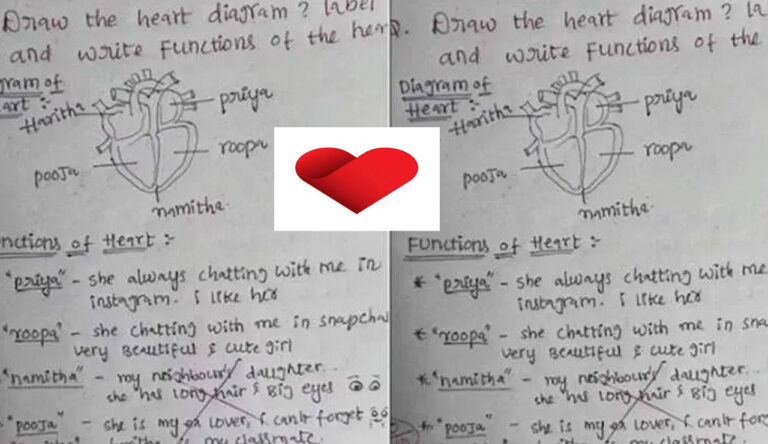 Draw the heart diagram? label
and write Functions of the hear
gram of
art :-
Haritha
priya
roopa
pooja
namitha
nctions of Heart :-
"priya" - she always chatting with me in
instagram. i like her
"roopa" - she chatting with me in snapcha
very beautiful & cute girl
"namitha" - my neighbour's daughter..
she has long hair & Big eyes
"pooja" - she is my ex lover, I can't forget
my classmate
Q. Draw the heart diagram? la
and write Functions of the
Diagram of
Heart :-
Haritha
priya
roopa
pooja
namitha
Functions of Heart :-
* "priya" - she always chatting with me
instagram. i like her
* "roopa" - she chatting with me in sna
very beautiful & cute girl
* "namitha" - my neighbour's daughter...
she has long hair & Big eyes
* "pooja" - she is my ex lover, I can't for
my classma